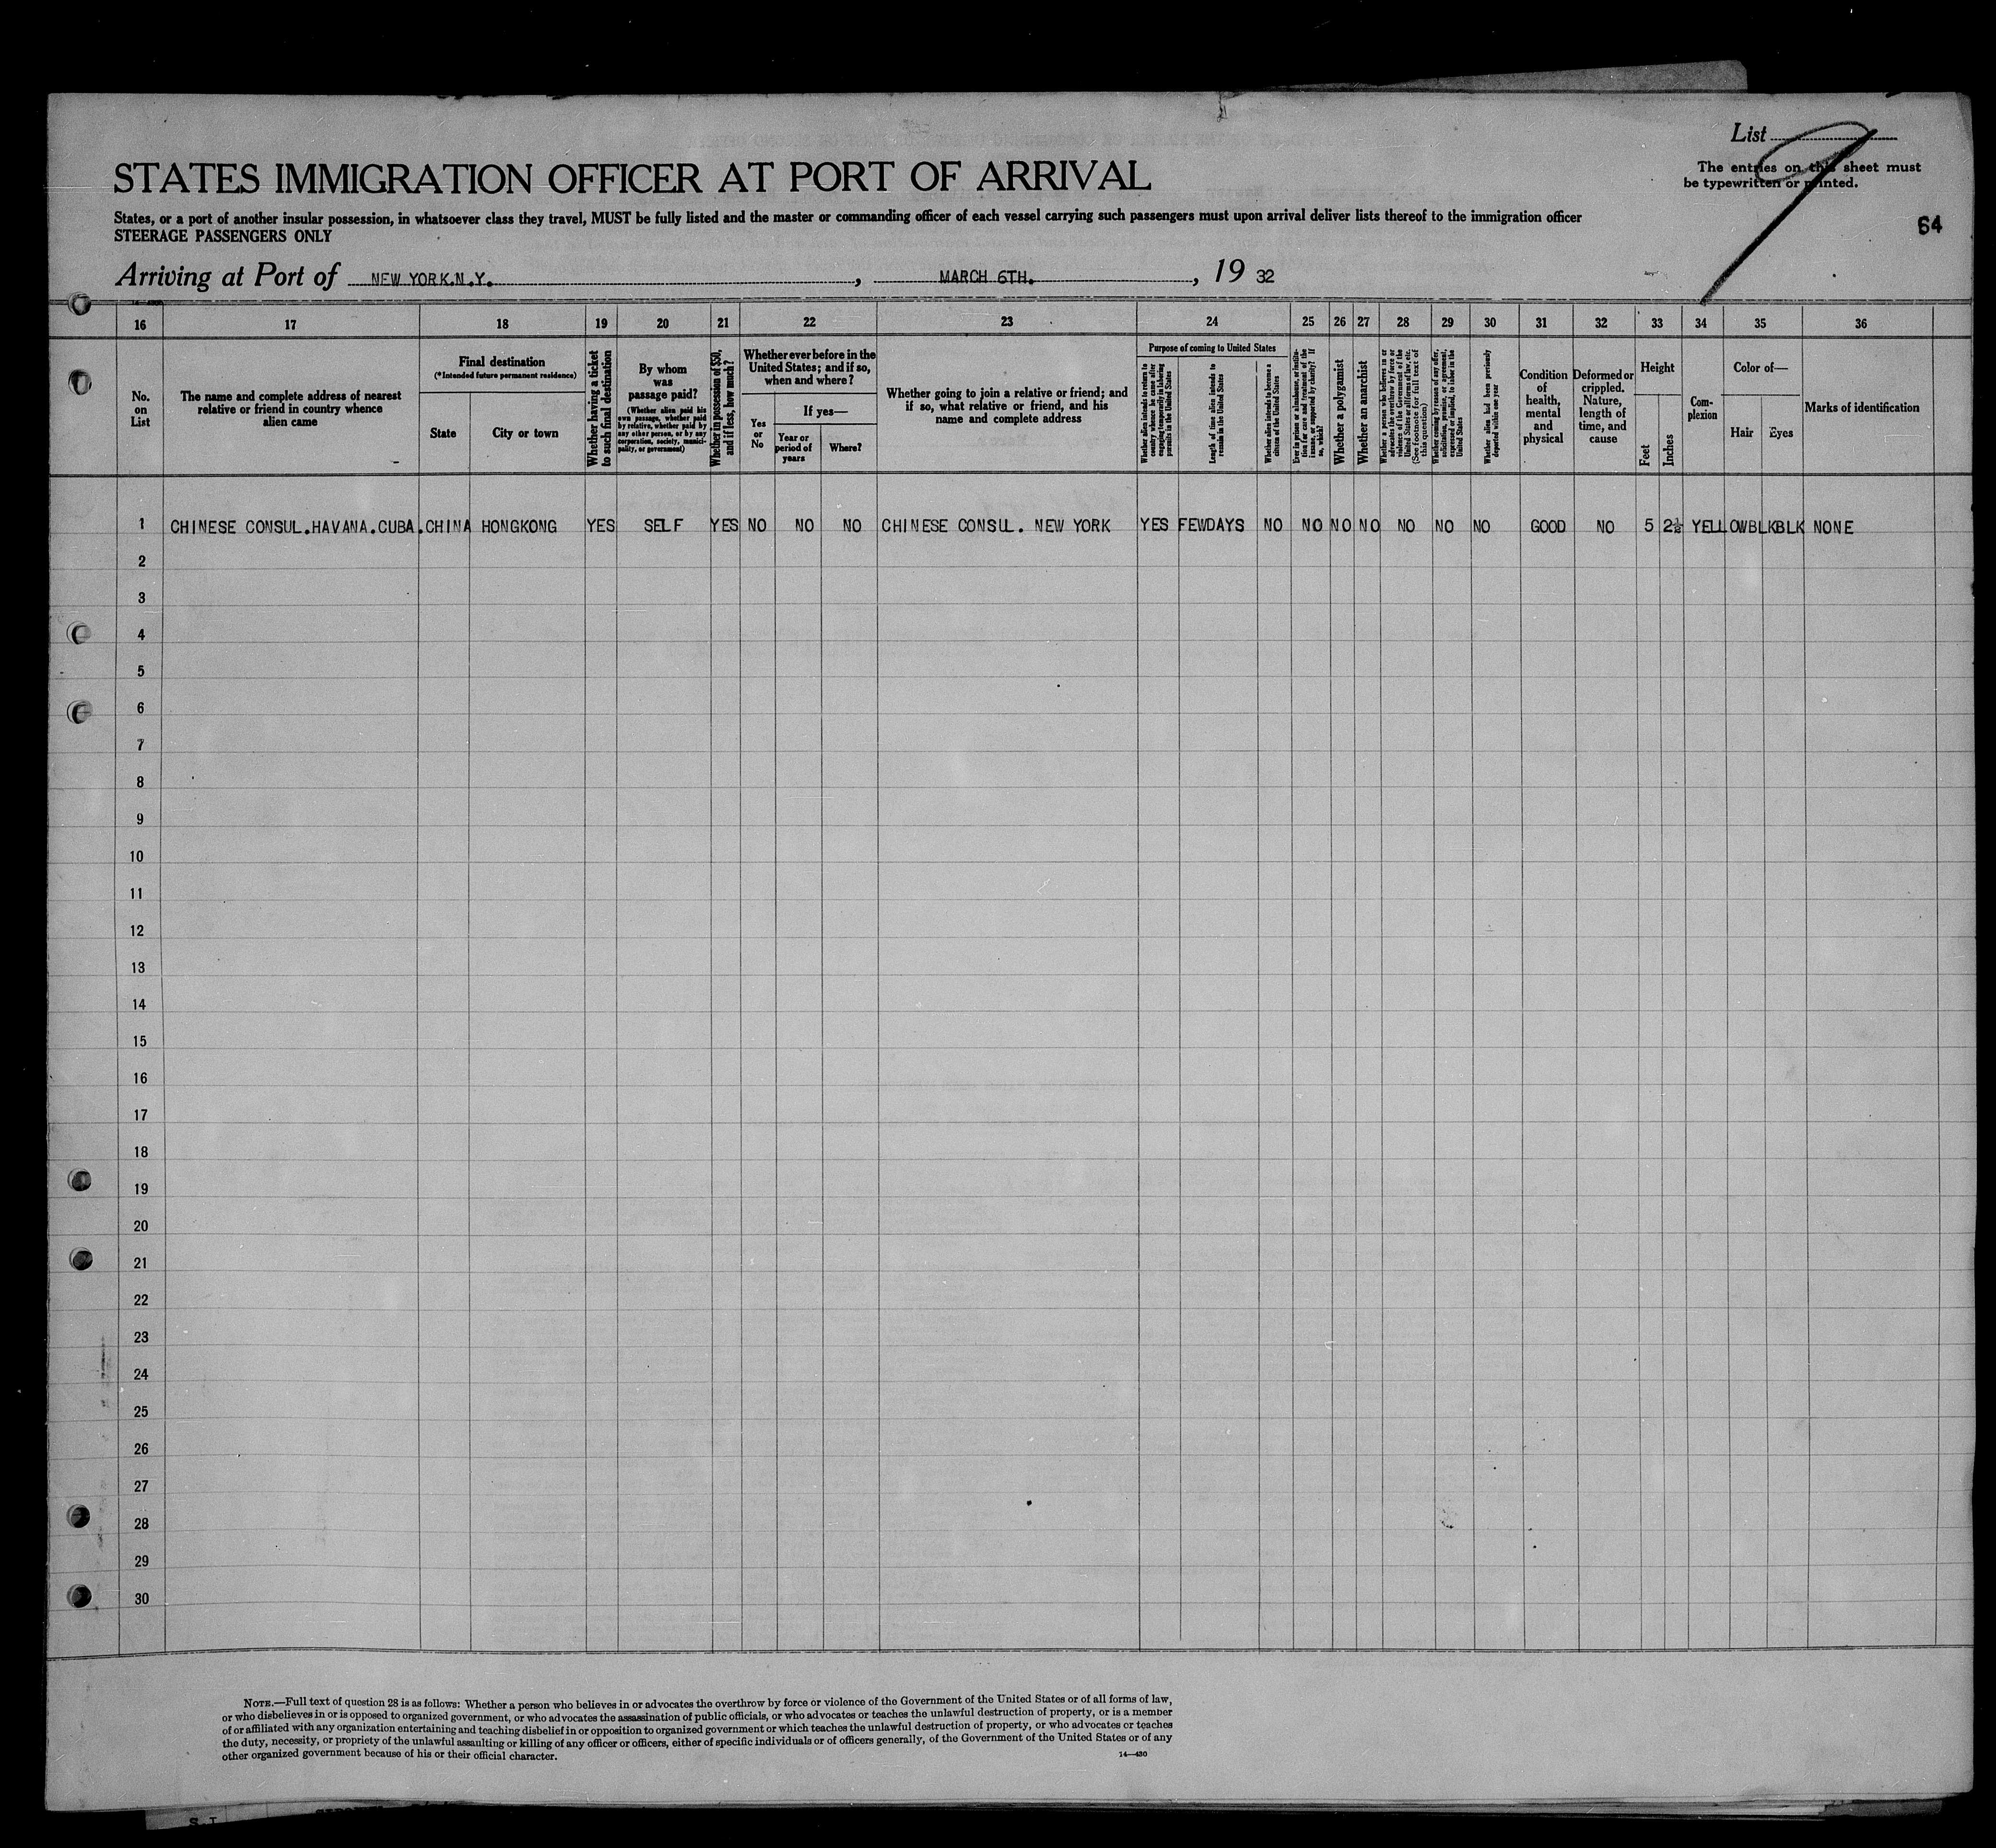 List 9
The entries on this sheet must
be typewritten or printed.
STATES IMMIGRATION OFFICER AT PORT OF ARRIVAL
64
States, or a port of another insular possession, in whatsoever class they travel, MUST be fully listed and the master or commanding officer of each vessel carrying such passengers must upon arrival deliver lists thereof to the immigration officer
STEERAGE PASSENGERS ONLY
Arriving at Port of NEW YORK.N.Y. , MARCH 6TH. , 19 32
16 17 18 19 20 21 22 23 24 25 26 27 28 29 30 31 32 33 34 35 36
No.
on
List
The name and complete address of nearest
relative or friend in country whence
alien came
Final destination
(*Intended future permanent residence)
State
City or town
Whether having a ticket
to such final destination
By whom
was
passage paid?
(Whether alien paid his
own passage, whether paid
by relative, whether paid by
any other person, or by any
corporation, society, munici-
pality, or government)
Whether in possession of $50,
and if less, how much?
Whether ever before in the
United States; and if so,
when and where?
Yes
or
No
If yes—
Year or
period of
years
Where?
Whether going to join a relative or friend; and
if so, what relative or friend, and his
name and complete address
Purpose of coming to United States
Whether alien intends to return to
country whence he came after
engaging temporarily in laboring
pursuits in the United States
Length of time alien intends to
remain in the United States
Whether alien intends to become a
citizen of the United States
Ever in prison or almshouse, or institu-
tion for care and treatment of the
insane, or supported by charity? If
so, which?
Whether a polygamist
Whether an anarchist
Whether a person who believes in or
advocates the overthrow by force or
violence of the Government of the
United States or all forms of law, etc.
(See footnote for full text of
this question)
Whether coming by reason of any offer,
solicitation, promise, or agreement,
expressed or implied, to labor in the
United States
Whether alien had been previously
deported within one year
Condition
of
health,
mental
and
physical
Deformed or
crippled.
Nature,
length of
time, and
cause
Height
Feet
Inches
Com-
plexion
Color of—
Hair
Eyes
Marks of identification
1 CHINESE CONSUL.HAVANA.CUBA. CHINA HONGKONG YES SELF YES NO NO NO CHINESE CONSUL. NEW YORK YES FEWDAYS NO NO NO NO NO NO NO GOOD NO 5 2½ YELLOW BLK BLK NONE
2
3
4
5
6
7
8
9
10
11
12
13
14
15
16
17
18
19
20
21
22
23
24
25
26
27
28
29
30
NOTE.—Full text of question 28 is as follows: Whether a person who believes in or advocates the overthrow by force or violence of the Government of the United States or of all forms of law,
or who disbelieves in or is opposed to organized government, or who advocates the assassination of public officials, or who advocates or teaches the unlawful destruction of property, or is a member
of or affiliated with any organization entertaining and teaching disbelief in or opposition to organized government or which teaches the unlawful destruction of property, or who advocates or teaches
the duty, necessity, or propriety of the unlawful assaulting or killing of any officer or officers, either of specific individuals or of officers generally, of the Government of the United States or of any
other organized government because of his or their official character.
14—430